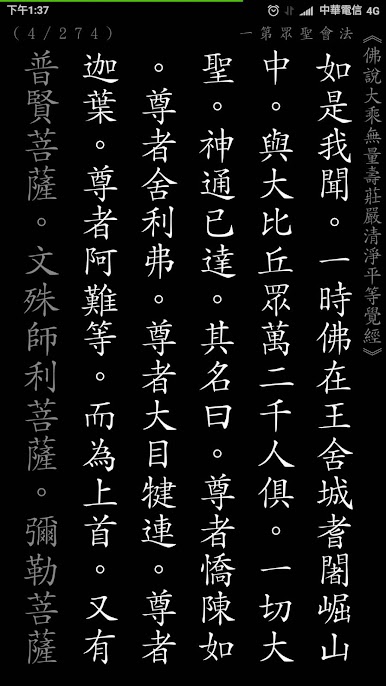 下午1:37
中華電信 4G
(4/274)
法會聖眾第一
《佛說大乘無量壽莊嚴清淨平等覺經》
如是我聞。一時佛在王舍城耆闍崛山
中。與大比丘眾萬二千人俱。一切大
聖。神通已達。其名曰。尊者憍陳如
。尊者舍利弗。尊者大目犍連。尊者
迦葉。尊者阿難等。而為上首。又有
普賢菩薩。文殊師利菩薩。彌勒菩薩